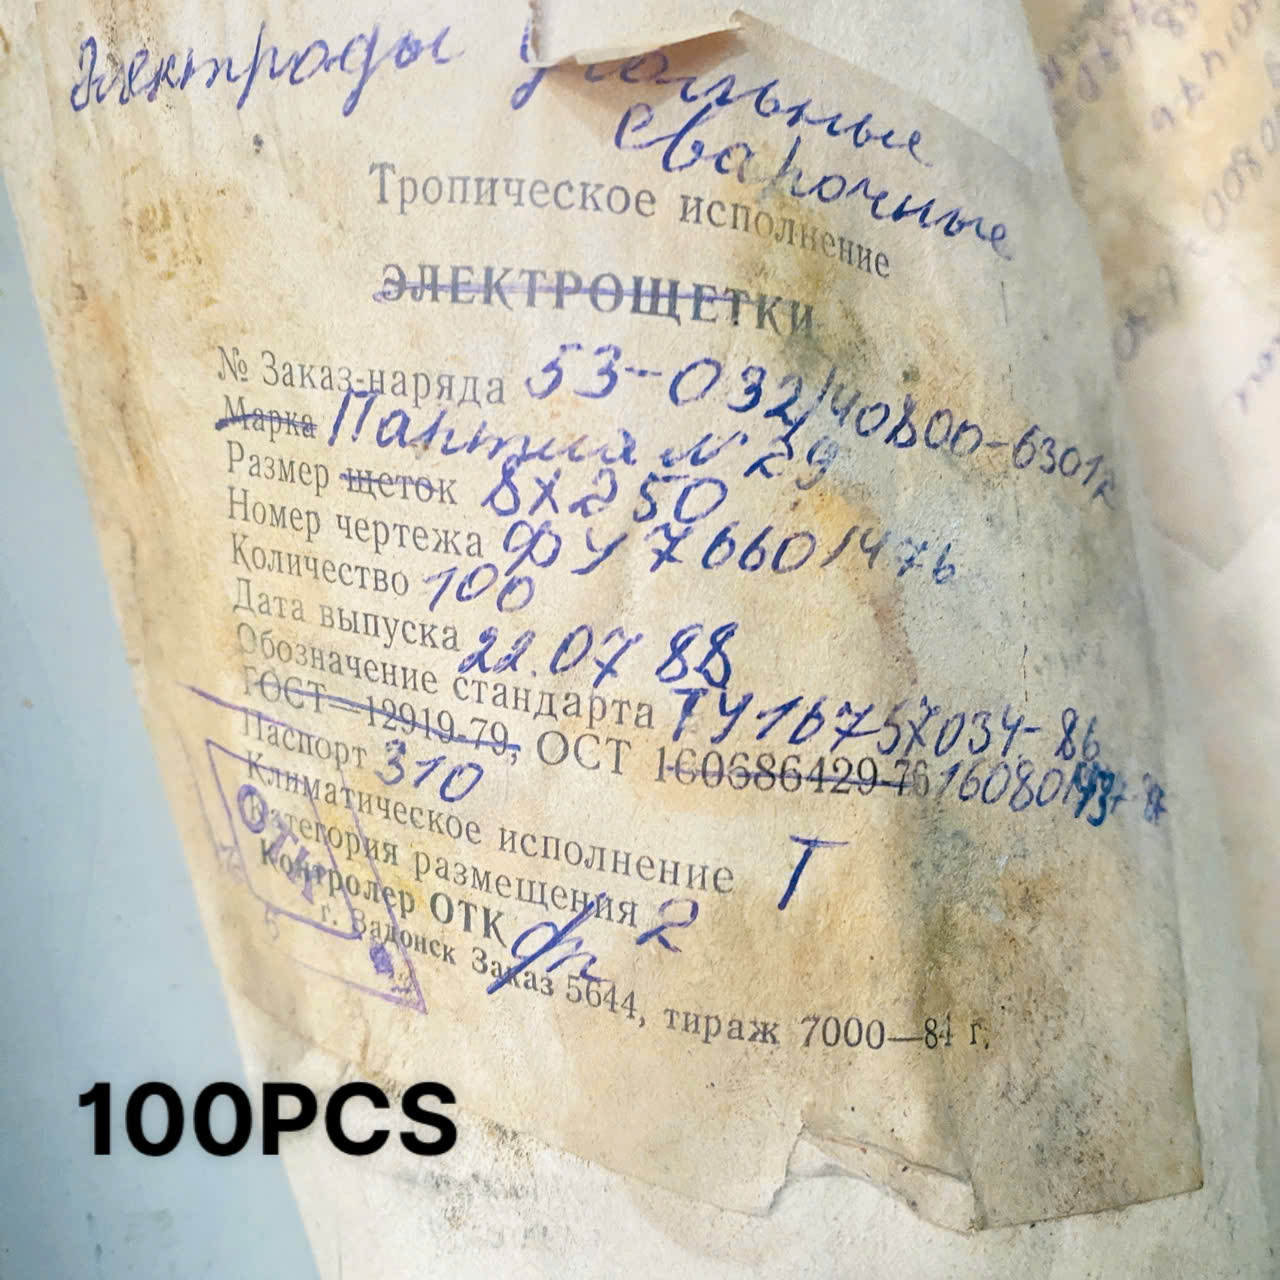 Электроды угольные
сварочные
Тропическое исполнение
ЭЛЕКТРОЩЕТКИ
№ Заказ-наряда 53-032/40800-63012
Марка Партия № 29
Размер щеток 8х250
Номер чертежа ФУ 766601476
Количество 100
Дата выпуска 22.07 88
Обозначение стандарта ТУ 1675Х034-86
ГОСТ—12919-79, ОСТ 160686429-76
Паспорт 310
Климатическое исполнение Т
Категория размещения 2
Контролер ОТК
г. Задонск Заказ 5644, тираж 7000—84 г.
ОТК
100PCS